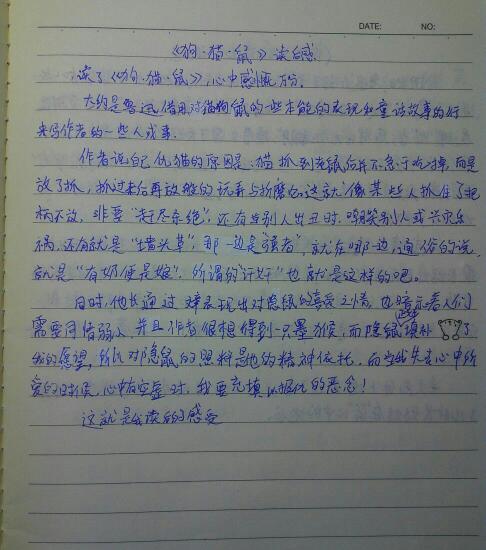 DATE: NO:
《狗·猫·鼠》读后感
读了《狗·猫·鼠》,心中感慨万分.
大约是鲁迅借用对猫狗鼠的一些本能的表现和童话故事的行
来写作者的一些人或事.
作者说自己仇猫的原因是:猫抓到老鼠后并不急于吃掉,而是
放了抓,抓过来后再放的玩弄与折磨它.这就像某些人抓住了把
柄不放,非要"赶尽杀绝",还有与别人出丑时,嘲笑别人或兴灾乐
祸.还有就是"墙头草",那一边是"强者",就在哪一边,通俗的说,
就是"有奶便是娘".所谓的"汗奸"也就是这样的吧.
同时,他也通过 表现出对隐鼠的喜爱之情.也暗示着人们
需要同情弱小,并且作者很想得到一只墨猴,而隐鼠填补 了
他的愿望,所以对隐鼠的照料是他的精神依托,而当我失去心中所
爱的时候,心中有空虚时,我要充填以报仇的恶念!
这就是我读后的感受